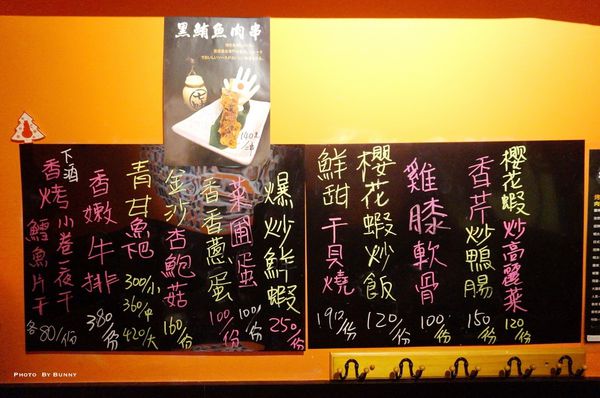 黑鮪魚肉串
140元/串
櫻花蝦炒高麗菜
120/份
香芹炒鴨腸
150/份
雞膝軟骨
100/份
櫻花蝦炒飯
120/份
鮮甜干貝燒
190/份
爆炒鮮蝦
250/份
菜圃蛋
100/份
香香蔥蛋
100/份
金沙杏鮑菇
160/份
青甘魚下巴
300/小
360/中
420/大
香嫩牛排
380/份
下酒
香烤小卷一夜干
鱈魚片干
各80/份
Photo By Bunny